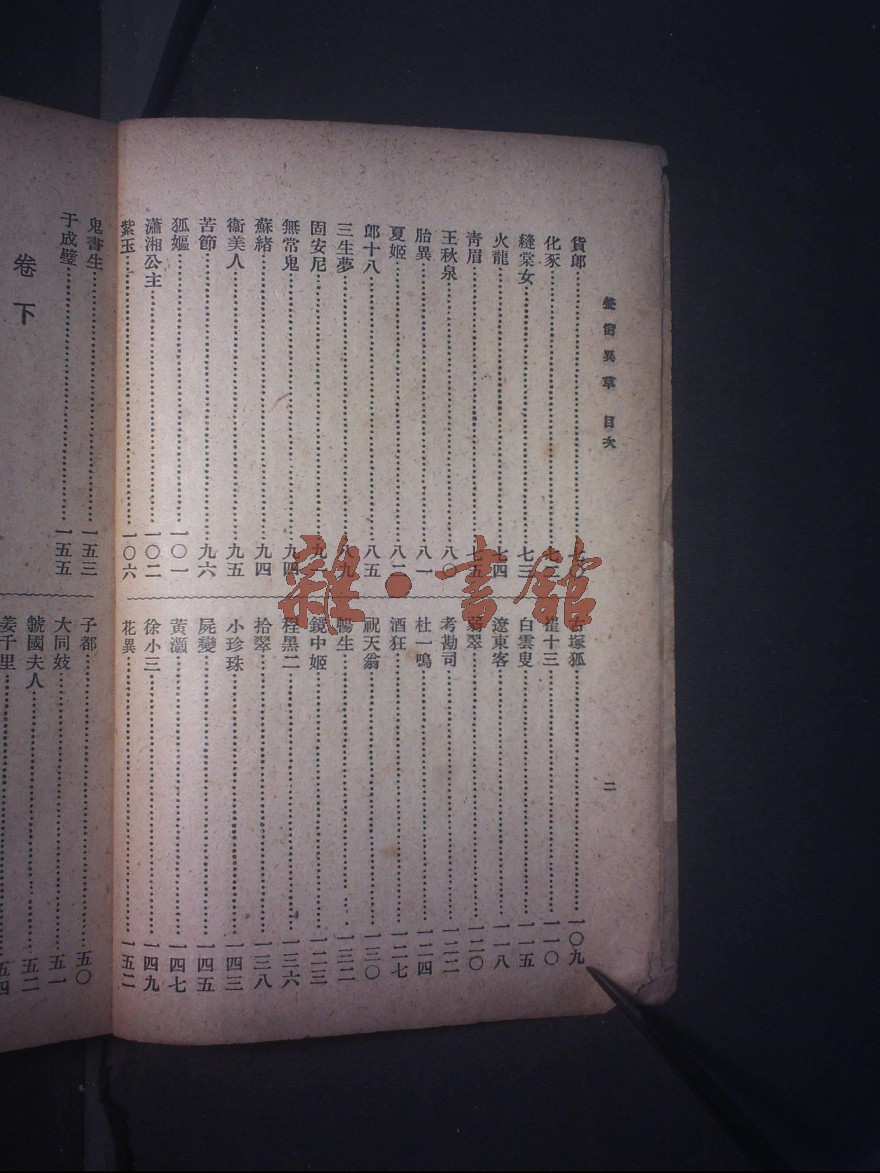 螢窗異草 目次
二
貨郎 七〇
化豕 七二
縫裳女 七三
火龍 七四
青眉 七五
王秋泉 八〇
胎異 八一
夏姬 八二
郎十八 八五
三生夢 八九
固安尼 九一
無常鬼 九四
蘇緒 九四
衞美人 九五
苦節 九六
狐嫗 一〇一
瀟湘公主 一〇二
紫玉 一〇六
古塚狐 一〇九
崔十三 一一〇
白雲叟 一一五
遼東客 一一八
翠 一二〇
考勘司 一二二
杜一鳴 一二四
酒狂 一二七
祝天翁 一三〇
暢生 一三二
鏡中姬 一二三
程黑二 一三六
拾翠 一三八
小珍珠 一四三
屍變 一四五
黃灝 一四七
徐小三 一四九
花異 一五二
鬼書生 一五三
于成璧 一五五
卷下
子都 五〇
大同妓 五一
虢國夫人 五二
姜千里 五四
雜·書館